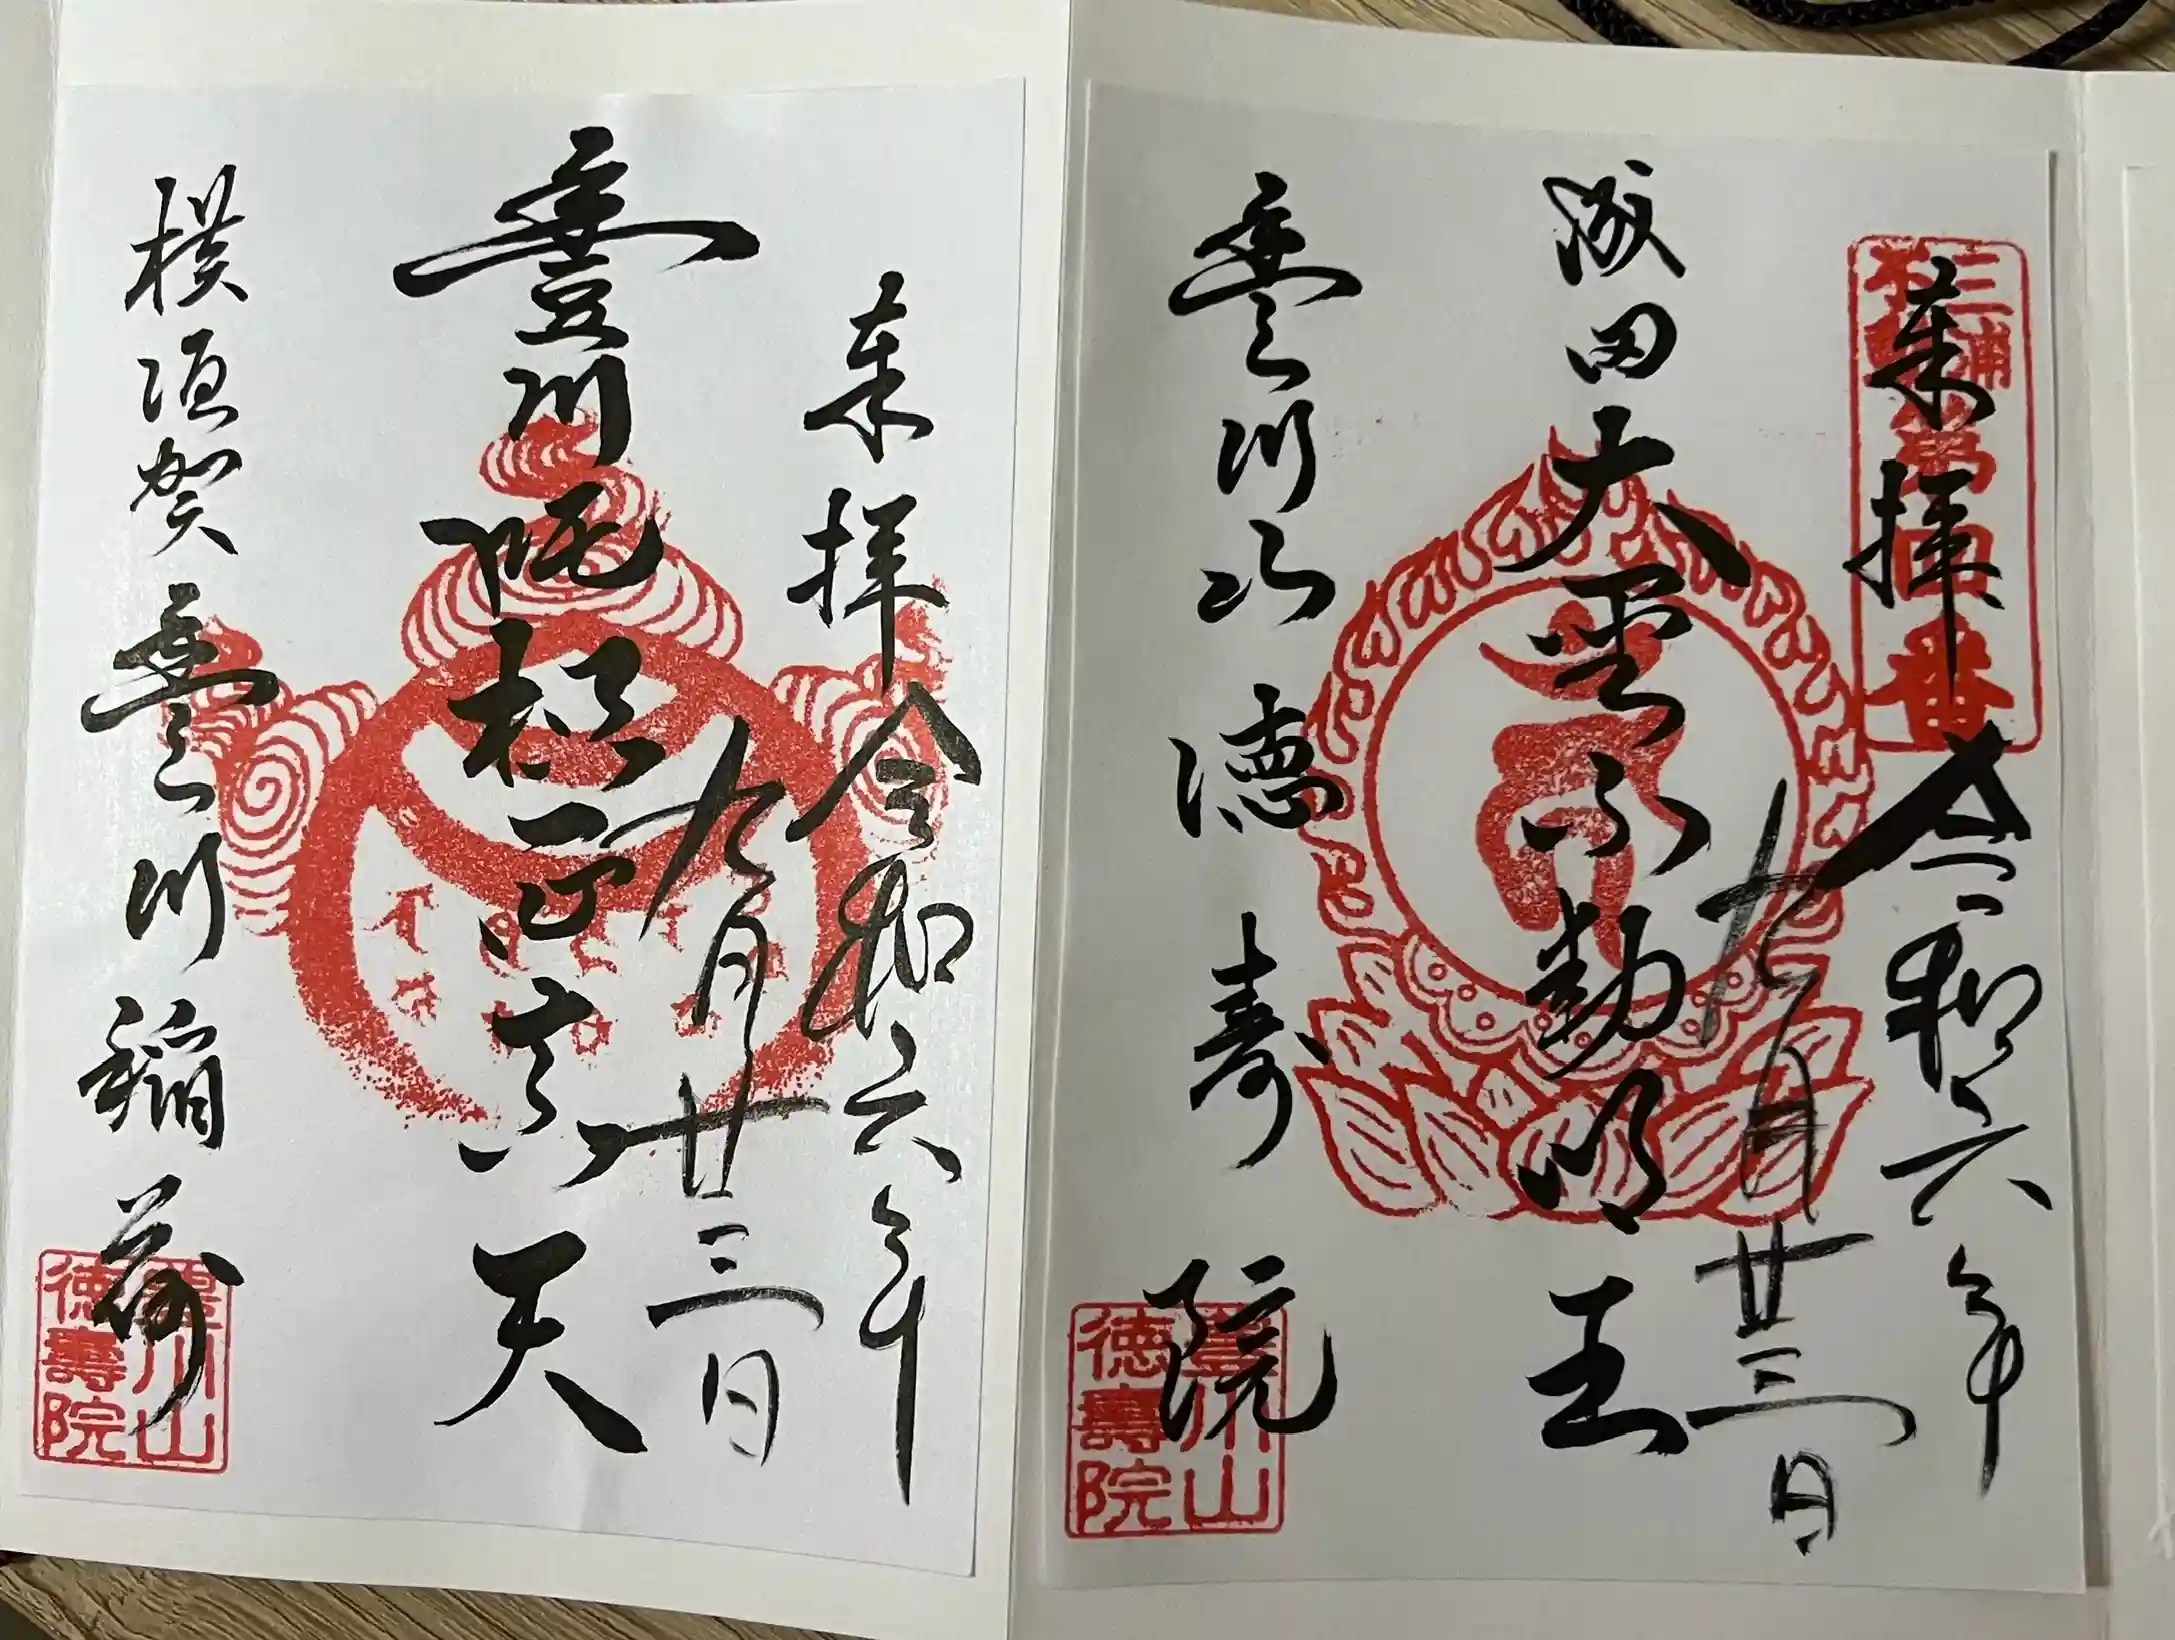 三浦
奉拝 令和六年
九月廿三日
成田大聖不動明王
豊川山 徳寿院
豊川山
徳壽院
奉拝 令和六年
九月廿三日
豊川吒枳尼真天
横須賀豊川稲荷
豊川山
徳壽院